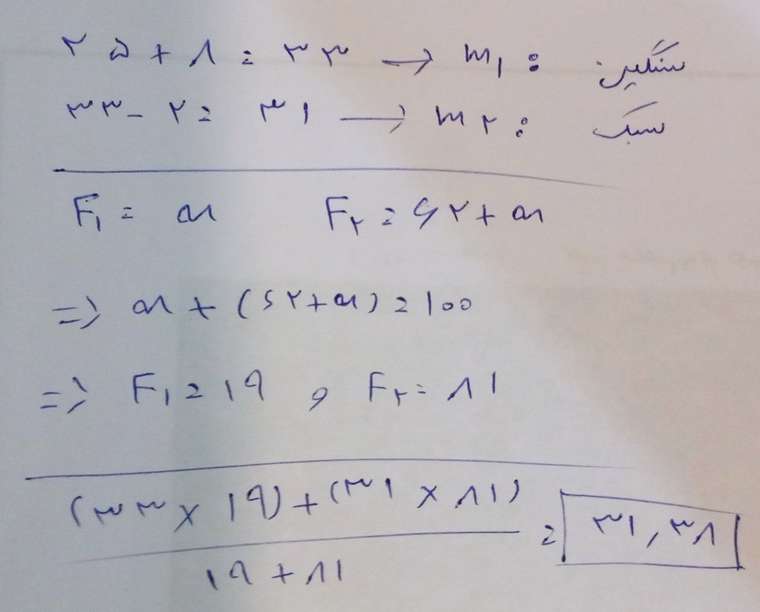 ۲۵ + ۸ = ۳۳ → m₁ : سنگین
۳۳ - ۲ = ۳۱ → m₂ : سبک
F₁ = x F₂ = ۶۲ + x
=> x + (۶۲ + x) = ۱۰۰
=> F₁ = ۱۹ و F₂ = ۸۱
(۳۳ × ۱۹) + (۳۱ × ۸۱)
۱۹ + ۸۱
= ۳۱,۳۸